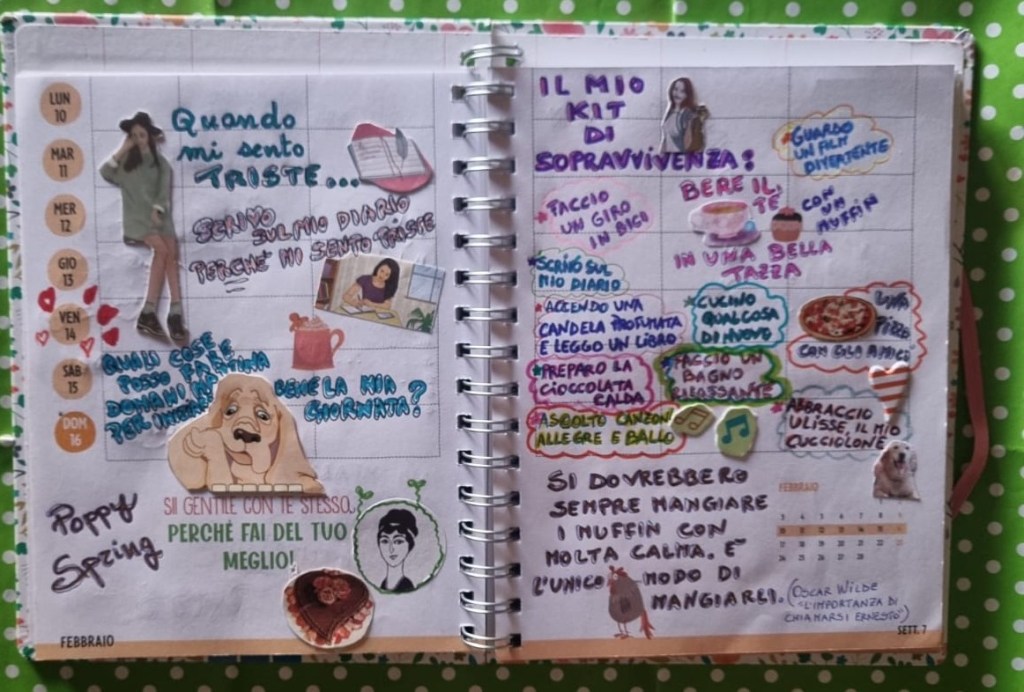 LUN
10
MAR
11
MER
12
GIO
13
VEN
14
SAB
15
DOM
16
Quando
mi sento
TRISTE...
SCRIVO
SUL MIO DIARIO
PERCHÉ MI SENTO TRISTE
QUALI COSE
POSSO FARE
DOMANI
PER
LA MIA
GIORNATA?
Poppy
Spring
SII GENTILE CON TE STESSO,
PERCHÉ FAI DEL TUO
MEGLIO!
FEBBRAIO
IL MIO
KIT
DI
SOPRAVVIVENZA:
GUARDO
UN FILM
DIVERTENTE
FACCIO
UN GIRO
IN BICI
BERE IL
TÈ
CON
UN
MUFFIN
IN UNA BELLA
TAZZA
SCRIVO SUL
MIO DIARIO
ACCENDO UNA
CANDELA PROFUMATA
E LEGGO UN LIBRO
CUCINO
QUALCOSA
DI NUOVO
UNA
PIZZA
CON GLI AMICI
PREPARO LA
CIOCCOLATA
CALDA
FACCIO UN
BAGNO
RILASSANTE
ASCOLTO CANZONI
ALLEGRE E BALLO
ABBRACCIO
ULISSE, IL MIO
CUCCIOLONE
SI DOVREBBERO
SEMPRE MANGIARE
I MUFFIN CON
MOLTA CALMA. È
L'UNICO MODO DI
MANGIARLI.
(OSCAR WILDE
"L'IMPORTANZA DI
CHIAMARSI ERNESTO")
FEBBRAIO
3 4 5 6 7 8 9
10 11 12 13 14 15 16
17 18 19 20 21 22 23
24 25 26 27 28
SETT. 7